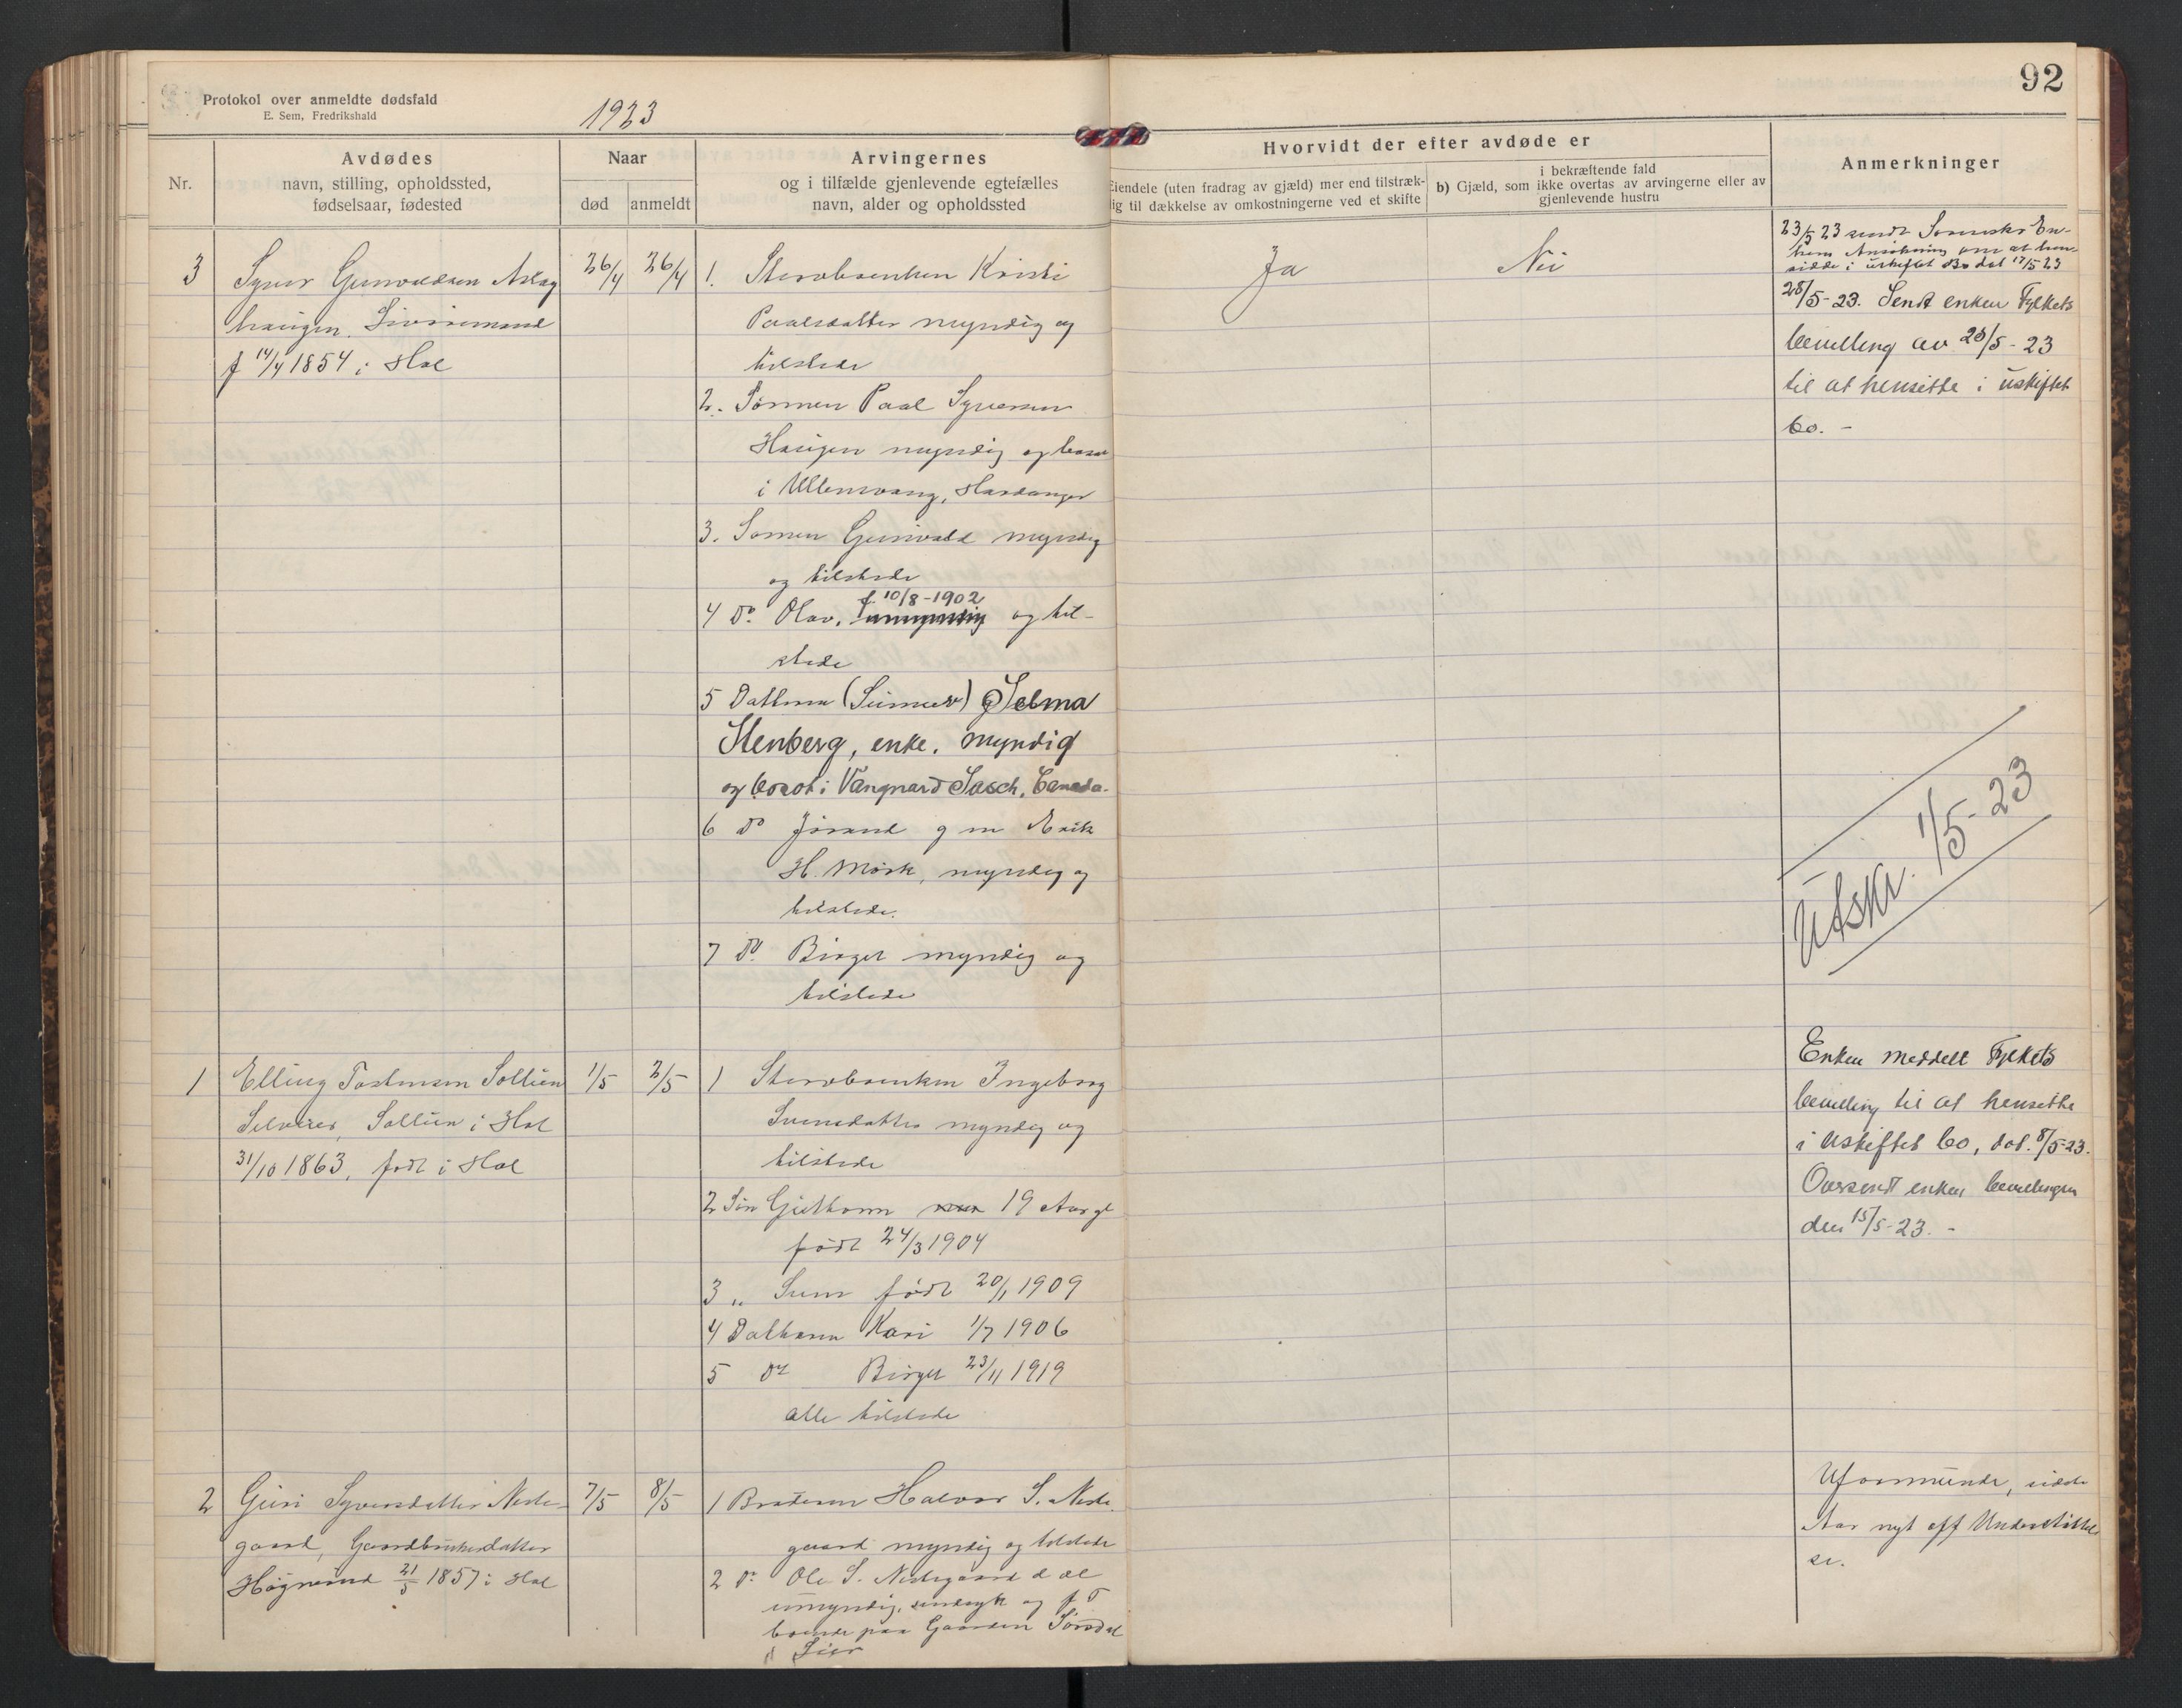 Protokol over anmeldte dødsfald
E. Sem, Fredrikshald
1923
Nr.
Avdødes
navn, stilling, opholdssted,
fødselsaar, fødested
Naar
død
anmeldt
Arvingernes
og i tilfælde gjenlevende egtefælles
navn, alder og opholdssted
3
Syver Gunvaldsen Aslag
haugen.
f 14/4 1854 i Hol
26/4
26/4
1. Stervboenken Kristi
Paalsdatter myndig og
tilstede
2. Sønnen Paal Syversen
Haugen myndig og bosat
i Ullensvang, Hardanger
3. Sønnen Gunvald myndig
og tilstede
f. 10/8-1902
4 Do. Olav, umyndig og til-
stede
5 Datteren Selma
Stenberg, enke. myndig
og bosat i Vangnard Sasch. Canada.
6 Do Jørand g m Erik
H. Mørk, myndig og
tilstede.
7 Do. Birget myndig og
tilstede
1
Elling Tostensen Sollien
Selveier, Sollien i Hol
31/10 1863, født i Hol
1/5
2/5
1 Stervboenken Ingeborg
Svensdatter myndig og
tilstede
2 Søn Guthorm 19 Aar gl
født 24/3 1904
3 „ Svein født 20/1 1909
4 Datteren Kari 1/7 1906
5 do Birget 23/11 1919
alle tilstede
2
Guri Syversdatter Nede-
gaard, Gaardbrukerdatter
Høgnerud 21/5 1857 i Hol
7/5
8/5
1 Broderen Halvor S. Nede
gaard myndig og tilstede
2 do Ole S. Nedegaard
umyndig, sindsyk og f T
boende paa Gaarden Sørsdal
i Lier
92
Hvorvidt der efter avdøde er
Eiendele (uten fradrag av gjæld) mer end tilstræk-
lig til dækkelse av omkostningerne ved et skifte
i bekræftende fald
b) Gjæld, som ikke overtas av arvingerne eller av
gjenlevende hustru
Anmerkninger
Ja
Nei
23/5 23 sendt Sorensk. En-
kens Ansøkning om at hen-
sidde i uskiftet Bo dat 17/5 23
28/5-23. Sendt enken Fylkets
bevilling av 25/5-23
til at hensitte i uskiftet
bo. -
Utskr. 1/5-23
Enken meddelt Fylkets
bevilling til at hensitte
i uskiftet bo, dat. 8/5-23.
Oversendt enken bevillingen
den 15/5-23. -
Uformuende, sidste
Aar nyt off Understøttel
se.